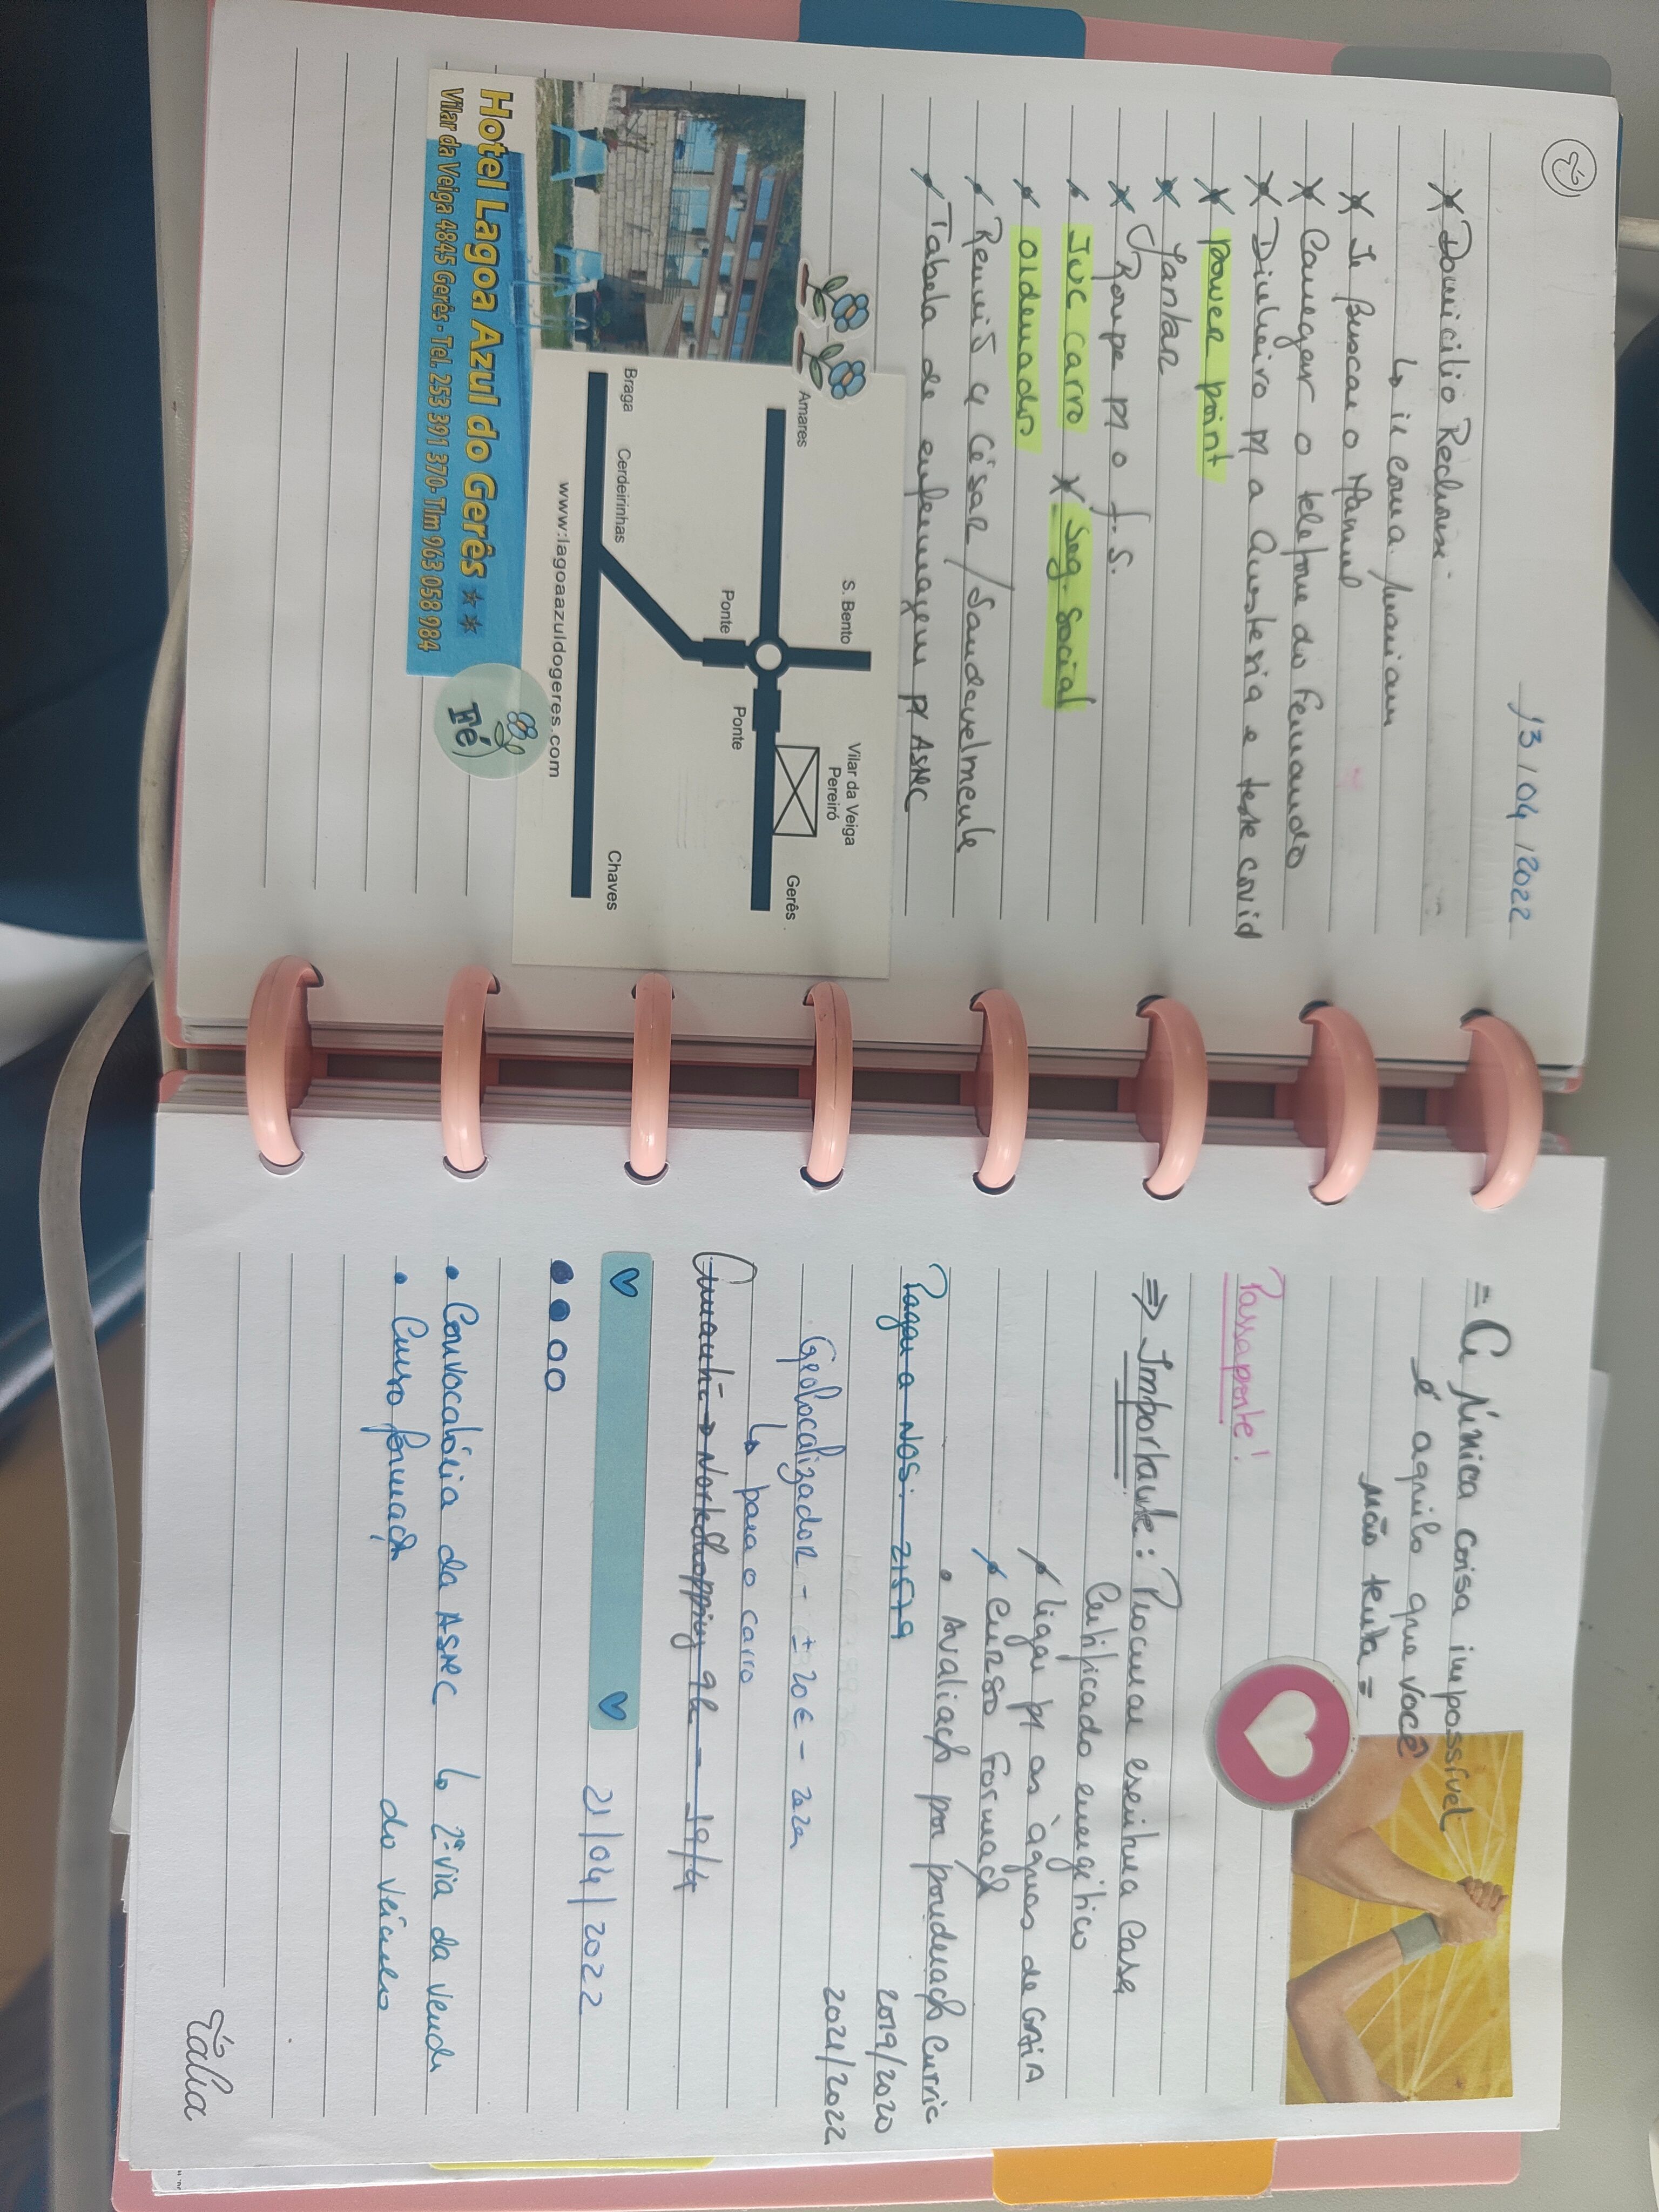 13/04/2022
x Domicilio Reclusi:
↳ ir com a
x Ir buscar o Manuel
x Carregar o telefone do Fernando
x Dinheiro p/ a Anestesia e teste covid
x power point
x Jantar
x Roupa p/ o f.s.
IUC carro x Seg. Social
x ordenados
Remis y César / Saudavelmente
Tabela de enfermagem p/ ASMC
Hotel Lagoa Azul do Gerês **
Vilar da Veiga 4845 Gerês - Tel. 253 391 370 - Tlm 963 058 984
S. Bento
Vilar da Veiga
Pereiró
Amares
Gerês
Ponte
Ponte
Braga
Cerdeirinhas
Chaves
www.lagoaazuldogeres.com
Fé
= A única coisa impossível
é aquilo que você
não tenta =
Passaporte!
⇒ Importante: Procurar escritura casa
Certificado energético
ligar p/ as águas de GAIA
curso Formaçã
• Avaliaçã por ponderaçã Curric
Pagar a NOS: 21579
2019/2020
2021/2022
Geolocalizador - ± 20€ -
↳ para o carro
Amanhã → Norteshopping 9h - 19/4
21/04/2022
• Convocatória da ASMC ↳ 2ª via da venda
• Curso formaçã do veículo
Tália